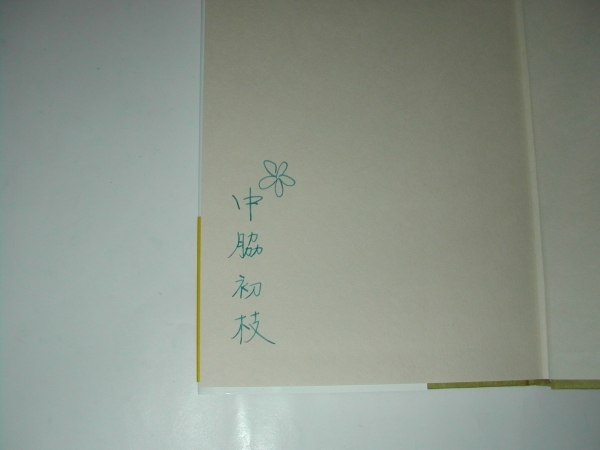 中脇初枝